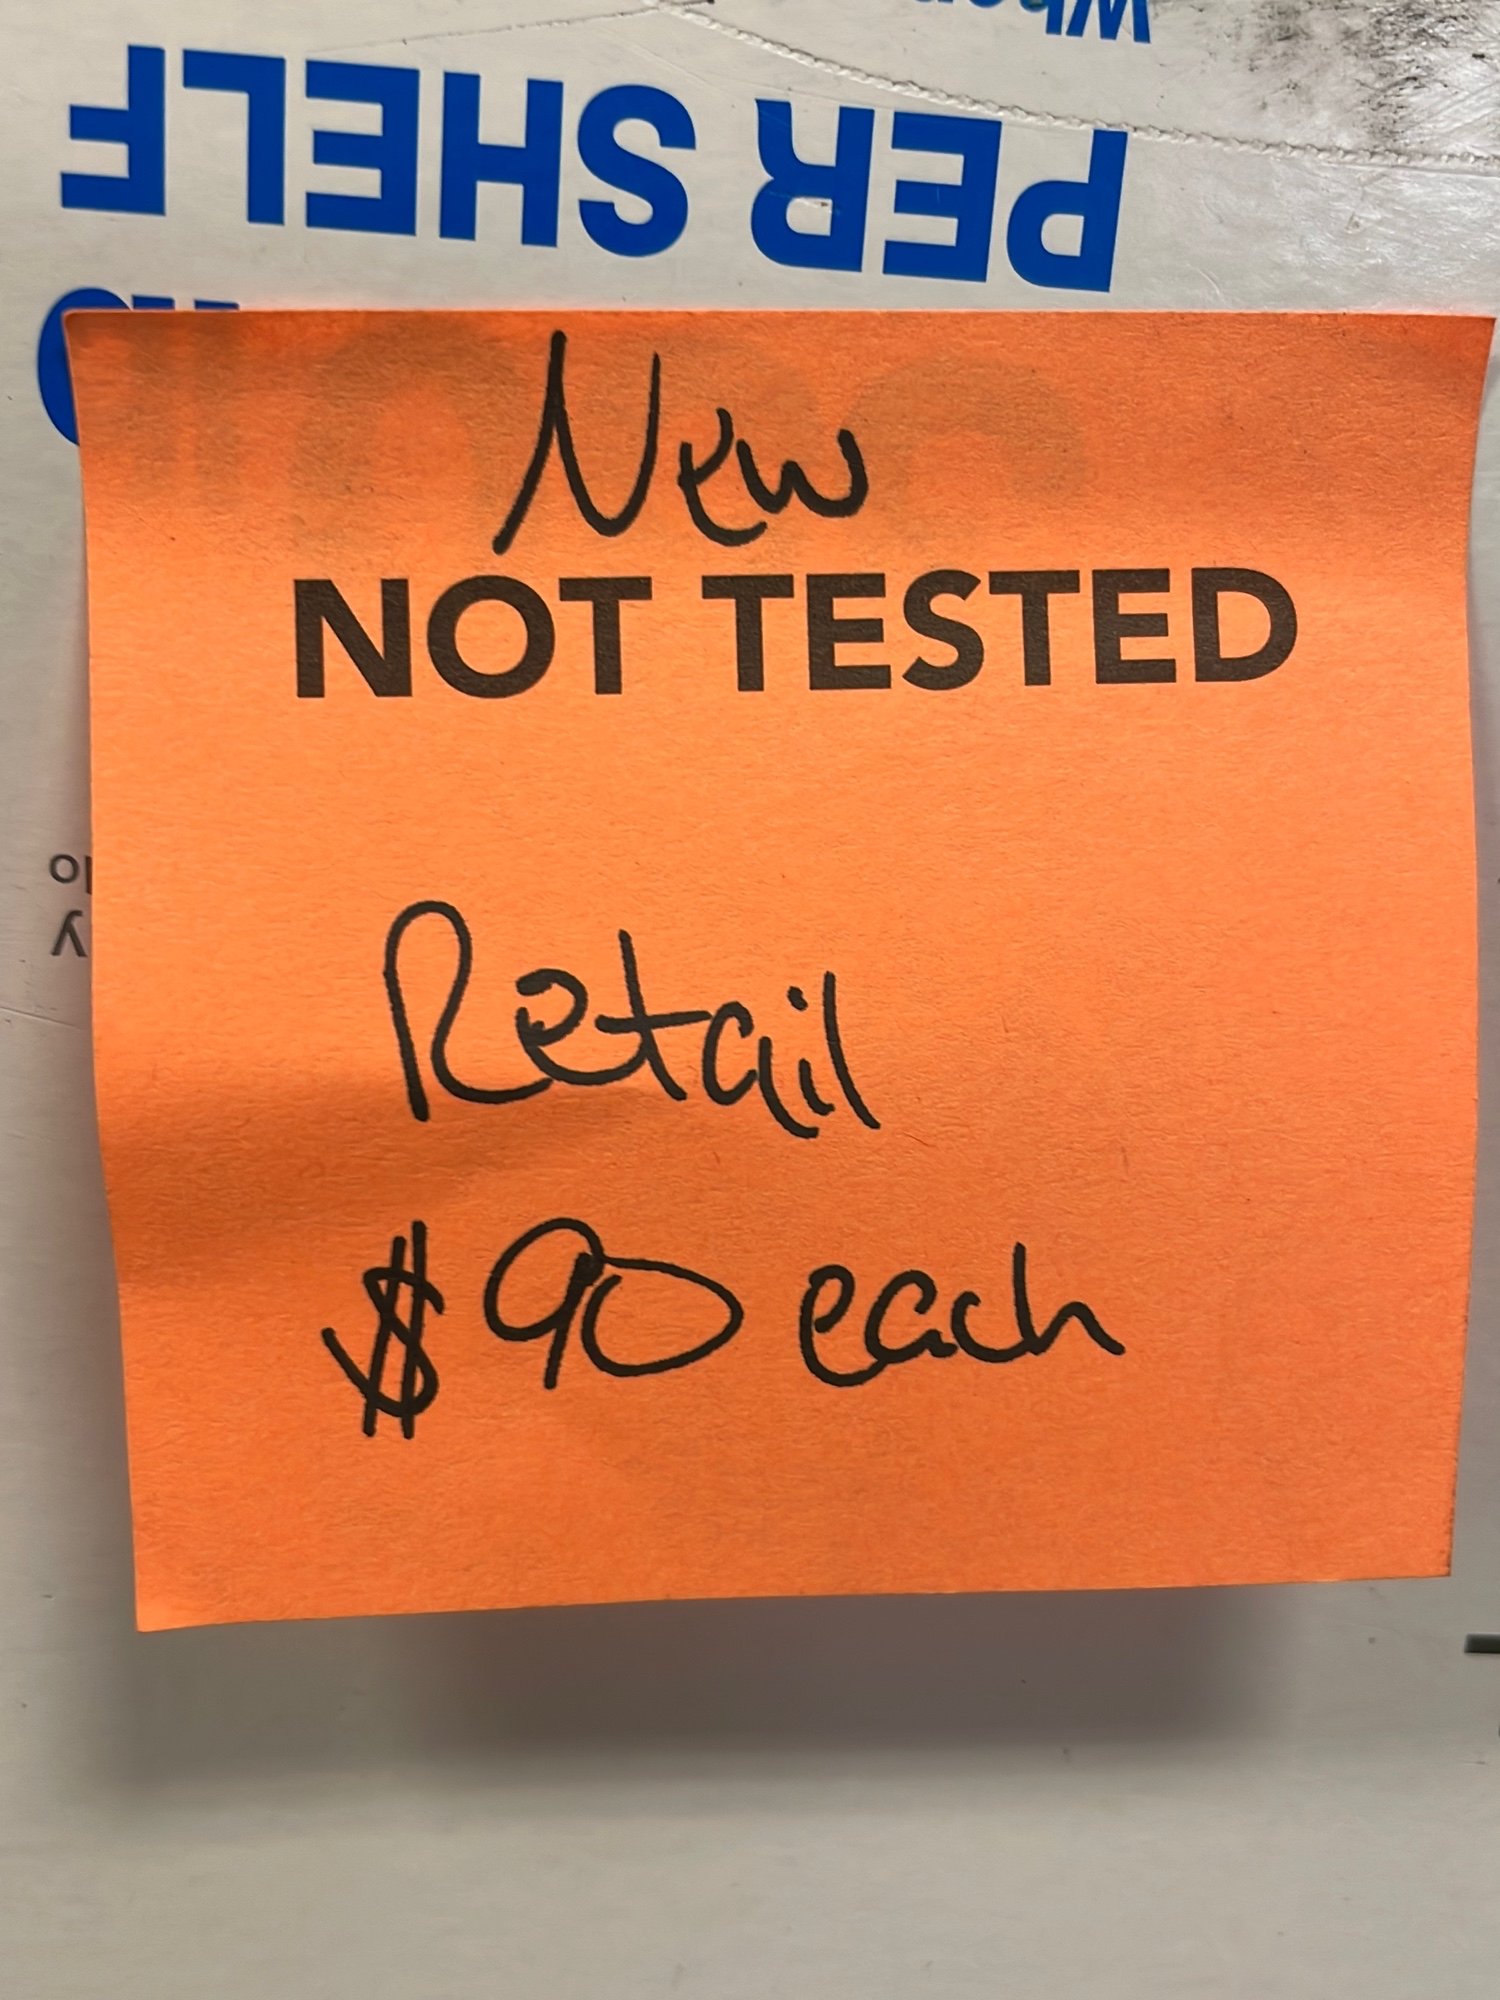 PER SHELF
New
NOT TESTED
Retail
$90 each